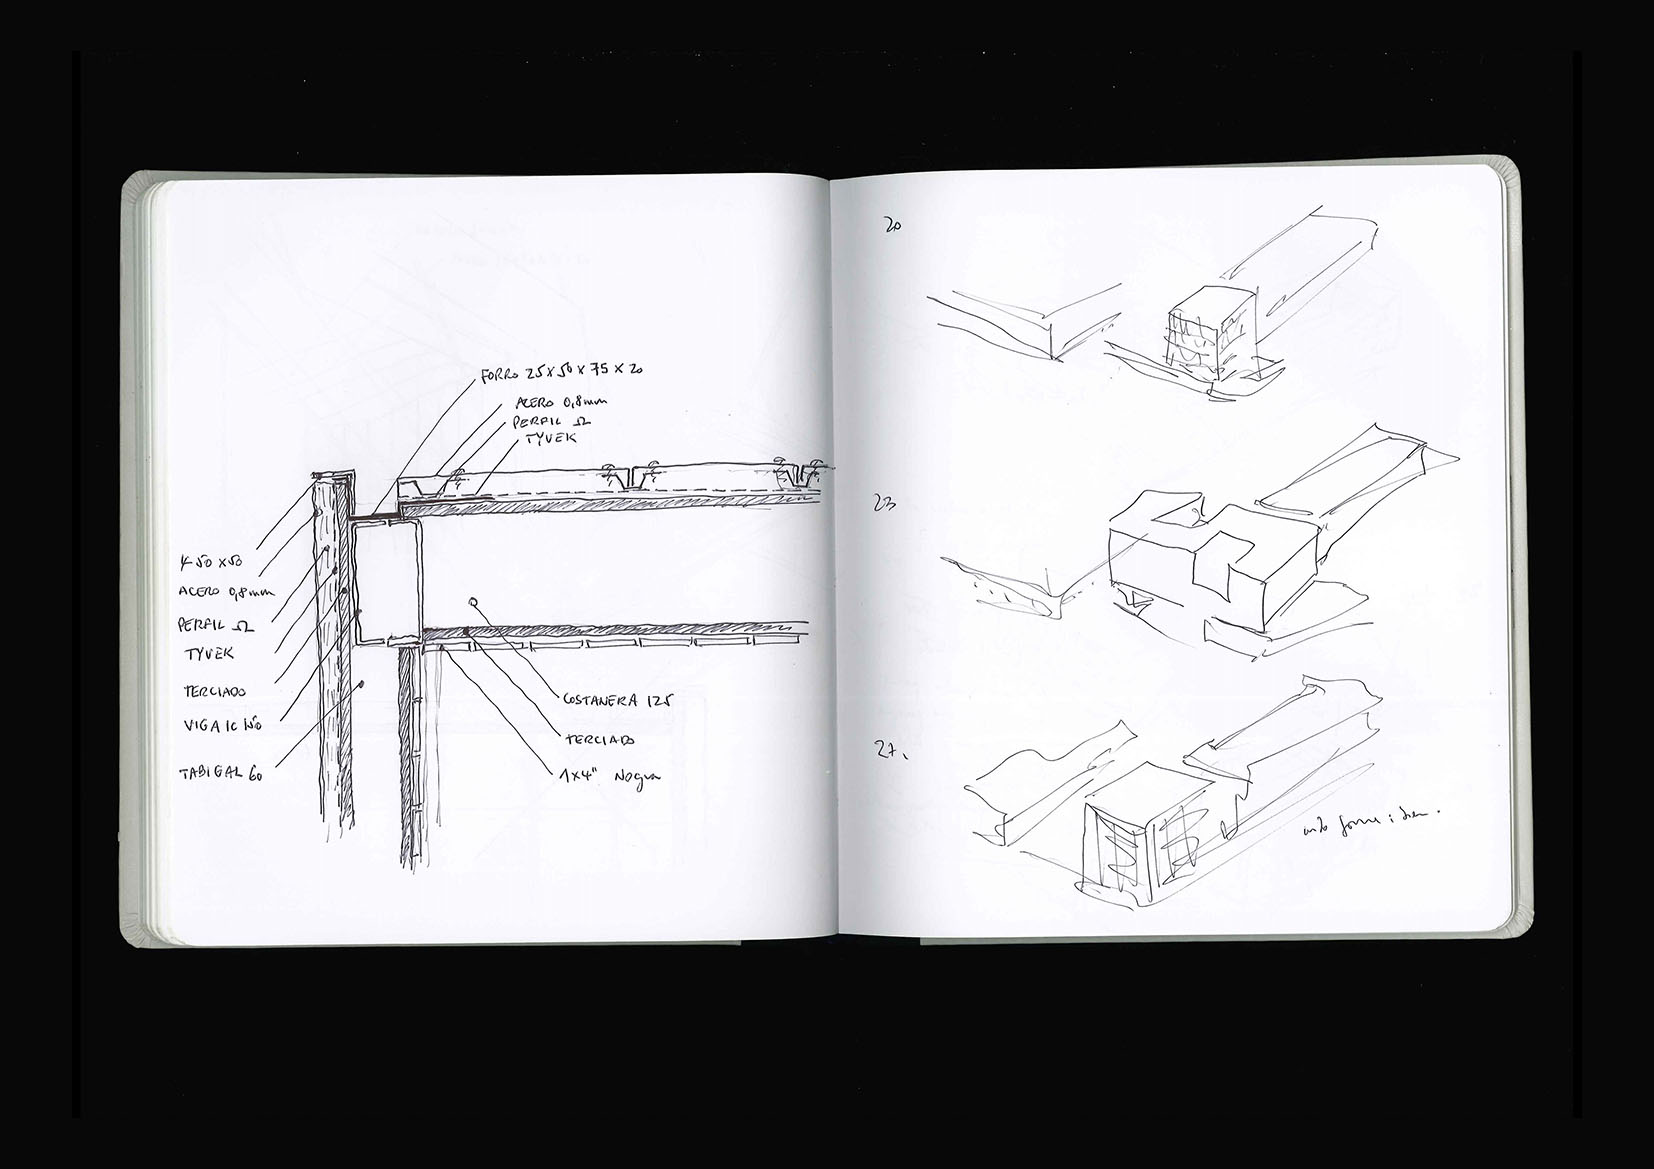 FORRO 25 x 50 x 75 x 20
ACERO 0,8mm
PERFIL Ω
TYVEK
50 x 50
ACERO 0,8mm
PERFIL Ω
TYVEK
TERCIADO
VIGA IC 150
TABIGAL 60
COSTANERA 125
TERCIADO
1x4"
20
23
27.